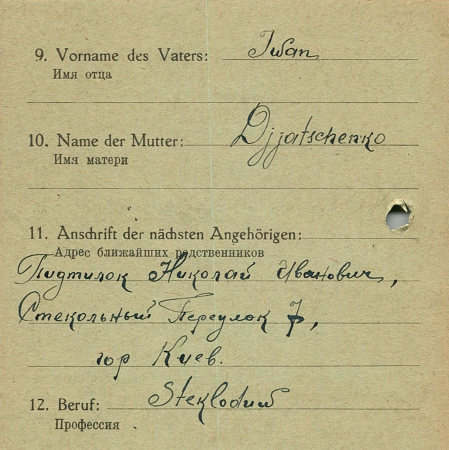 9. Vorname des Vaters: Iwan
Имя отца
10. Name der Mutter: Djjatschenko
Имя матери
11. Anschrift der nächsten Angehörigen:
Адрес ближайших родственников
Пидтилок Николай Иванович,
Стекольный Переулок 7,
гор Киев.
12. Beruf:
Профессия